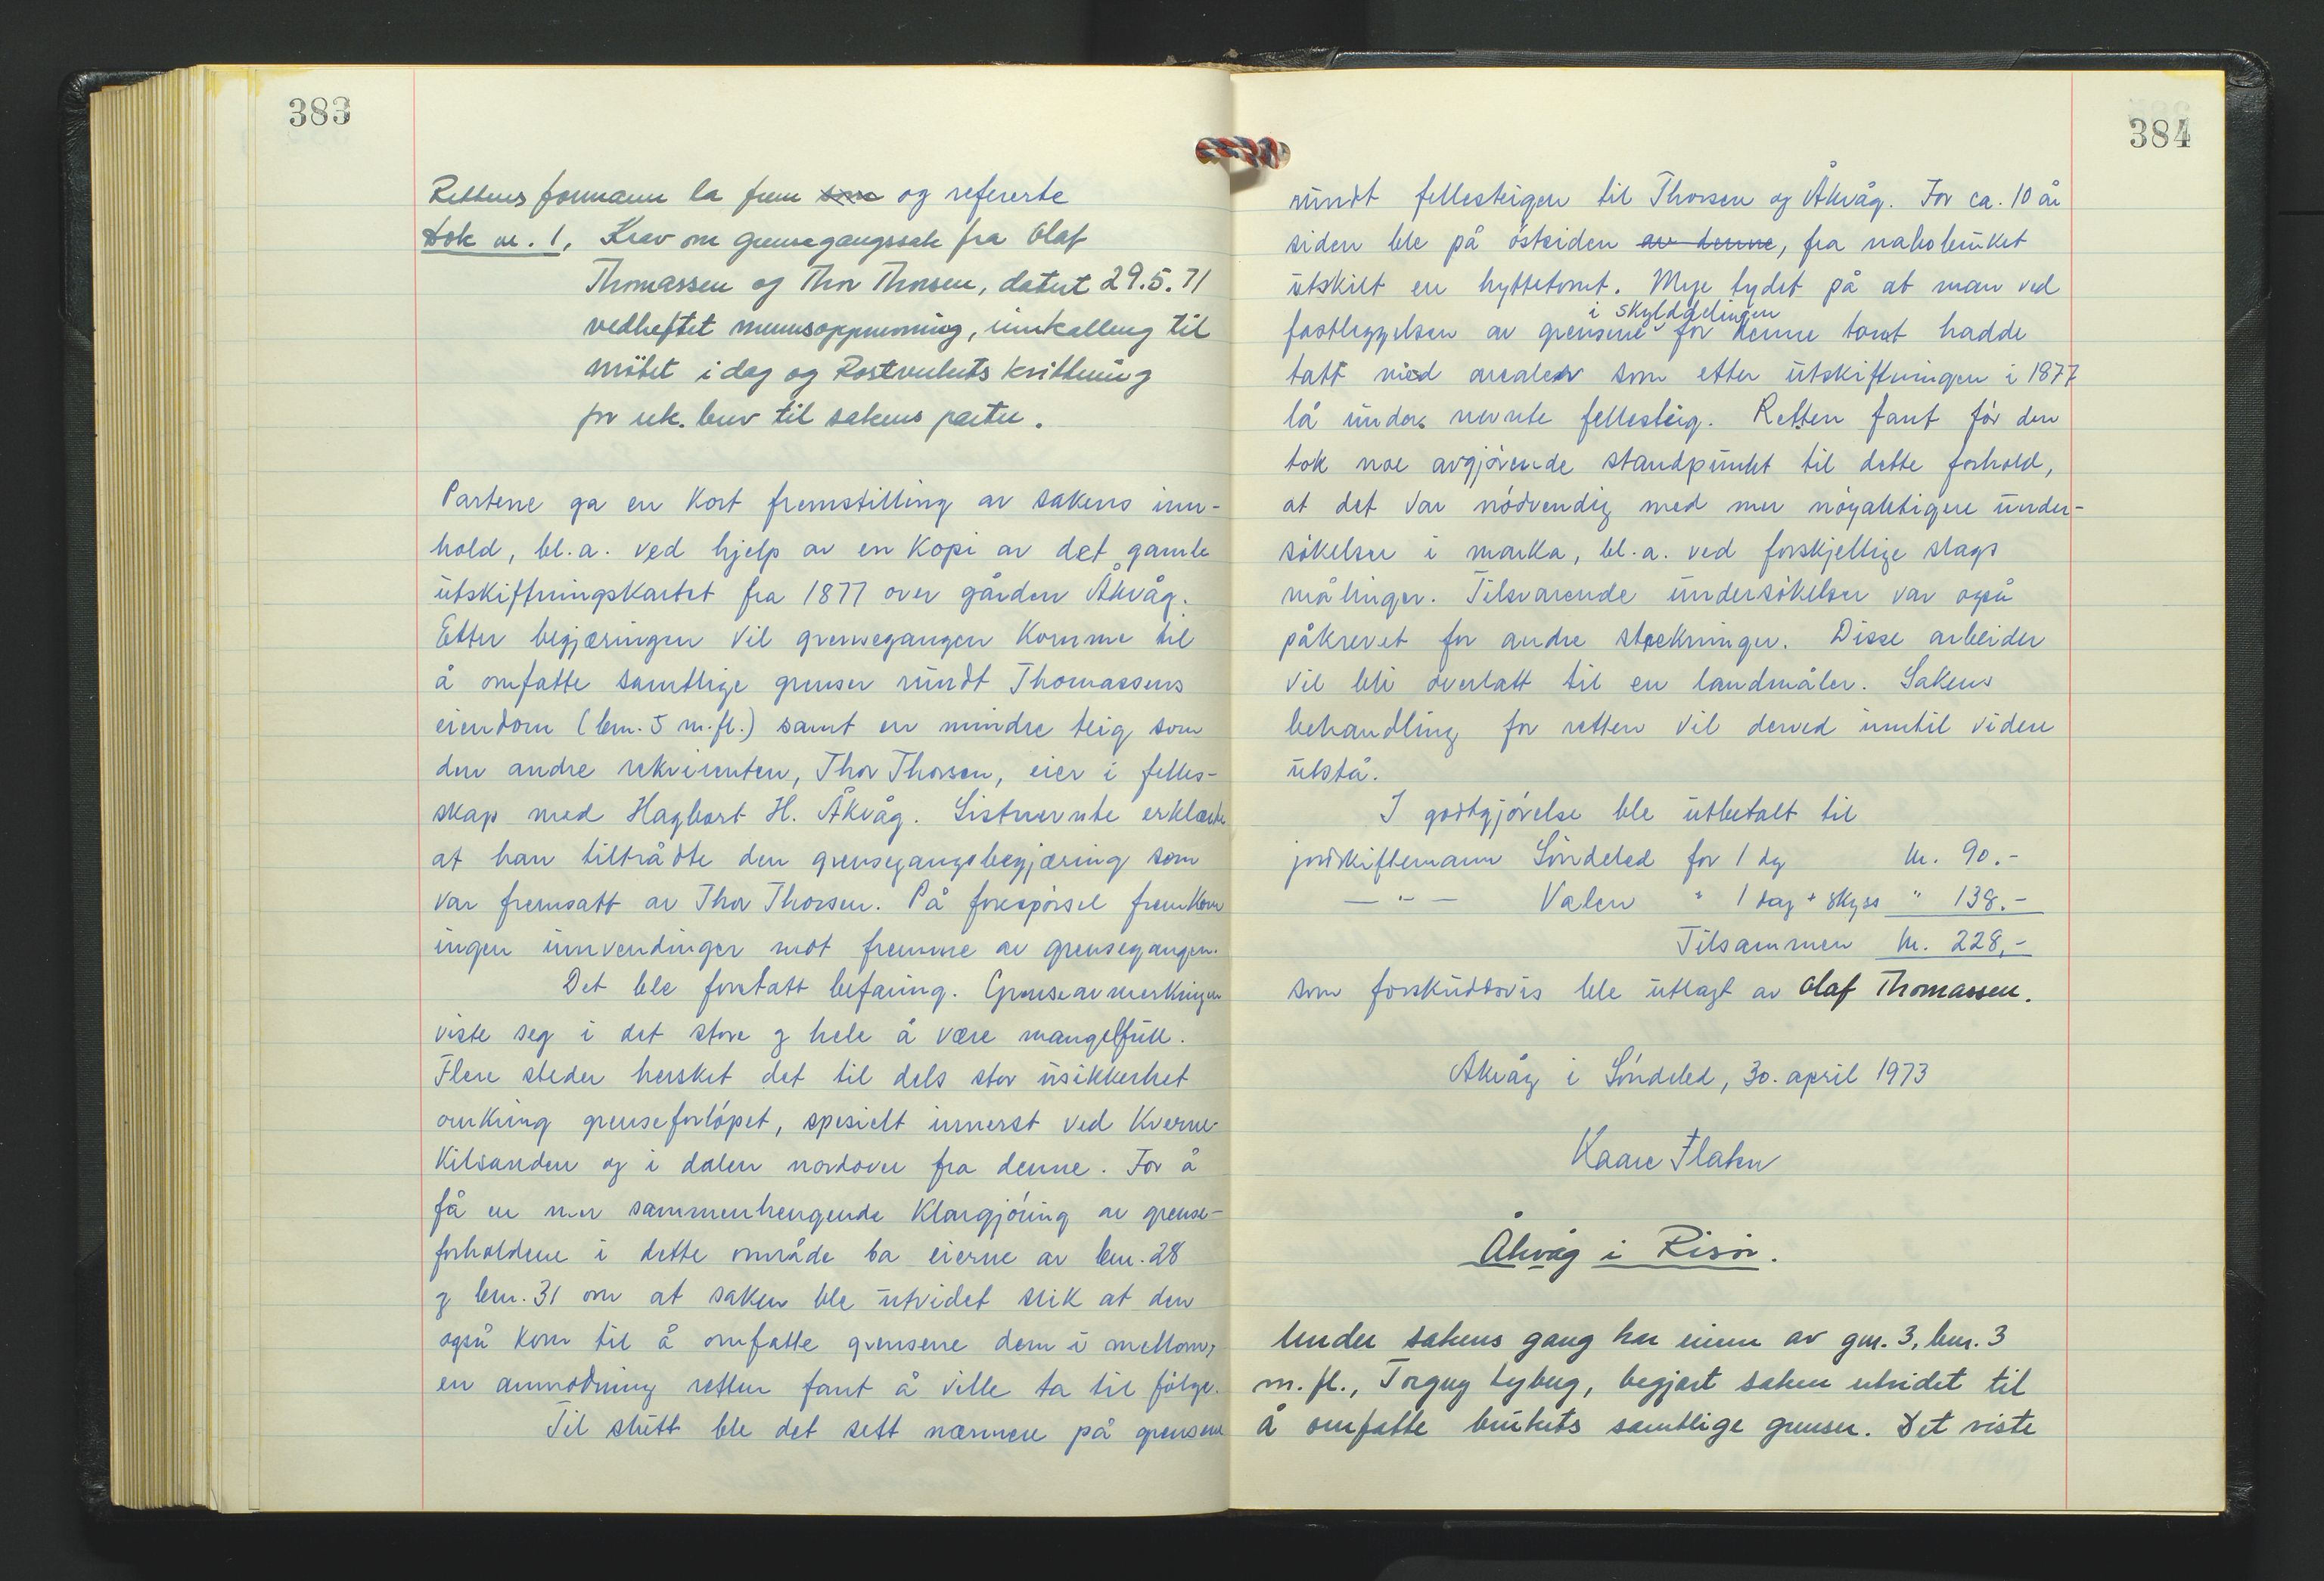 383
Rettens formann la frem som og refererte
Dok nr. 1. Krav om grensegangssak fra Olaf
Thomassen og Thor Thorsen, datert 29.5.71
vedheftet mannsoppnevning, innkalling til
mötet i dag og Postverkets kvittering
for rek. brev til sakens parter.
Partene ga en kort fremstilling av sakens inn-
hold, bl.a. ved hjelp av en kopi av det gamle
utskiftningskartet fra 1877 over gården Åkvåg.
Etter begjæringen vil grensegangen komme til
å omfatte samtlige grenser rundt Thomassens
eiendom (bnr. 5 m.fl.) samt en mindre teig som
den andre rekvirenten, Thor Thorsen, eier i felles-
skap med Hagbart H. Åkvåg. Sistnevnte erklærte
at han tiltrådte den grensegangsbegjæring som
var fremsatt av Thor Thorsen. På forespörsel fremkom
ingen innvendinger mot fremme av grensegangen.
Det ble foretatt befaring. Grenseavmerkingen
viste seg i det store og hele å være mangelfull.
Flere steder hersket det til dels stor usikkerhet
omkring grenseforlöpet, spesielt innerst ved Kverne-
kilsanden og i dalen nordover fra denne. For å
få en mer sammenhengende klargjöring av grense-
forholdene i dette område ba eierne av bnr. 28
og bnr. 31 om at saken ble utvidet slik at den
også kom til å omfatte grensene dem i mellom,
en anmodning retten fant å ville ta til fölge.
Til slutt ble det sett nærmere på grensene
384
rundt fellesteigen til Thorsen og Åkvåg. For ca. 10 år
siden ble på östsiden av denne, fra nabobruket
utskilt en hyttetomt. Mye tydet på at man ved
i skylddelingen
fastleggelsen av grensene for denne tomt hadde
tatt med arealer som etter utskiftningen i 1877
lå under nevnte fellesteig. Retten fant för den
tok noe avgjörende standpunkt til dette forhold,
at det var nödvendig med mer nöyaktigere under-
sökelser i marka, bl.a. ved forskjellige slags
målinger. Tilsvarende undersökelser var også
påkrevet for andre strekninger. Disse arbeider
vil bli overlatt til en landmåler. Sakens
behandling for retten vil derved inntil videre
utstå.
I godtgjörelse ble utbetalt til
jordskiftemann Söndeled for 1 dg kr. 90.-
— " — Valen " 1 dag + skyss " 138.-
Tilsammen kr. 228,-
som forskuddsvis ble utlagt av Olaf Thomassen.
Åkvåg i Söndeled, 30. april 1973
Kaare Flaten
Åkvåg i Risör.
Under sakens gang har eieren av gnr. 3, bnr. 3
m.fl., Torgny Lyberg, begjært saken utvidet til
å omfatte brukets samtlige grenser. Det viste